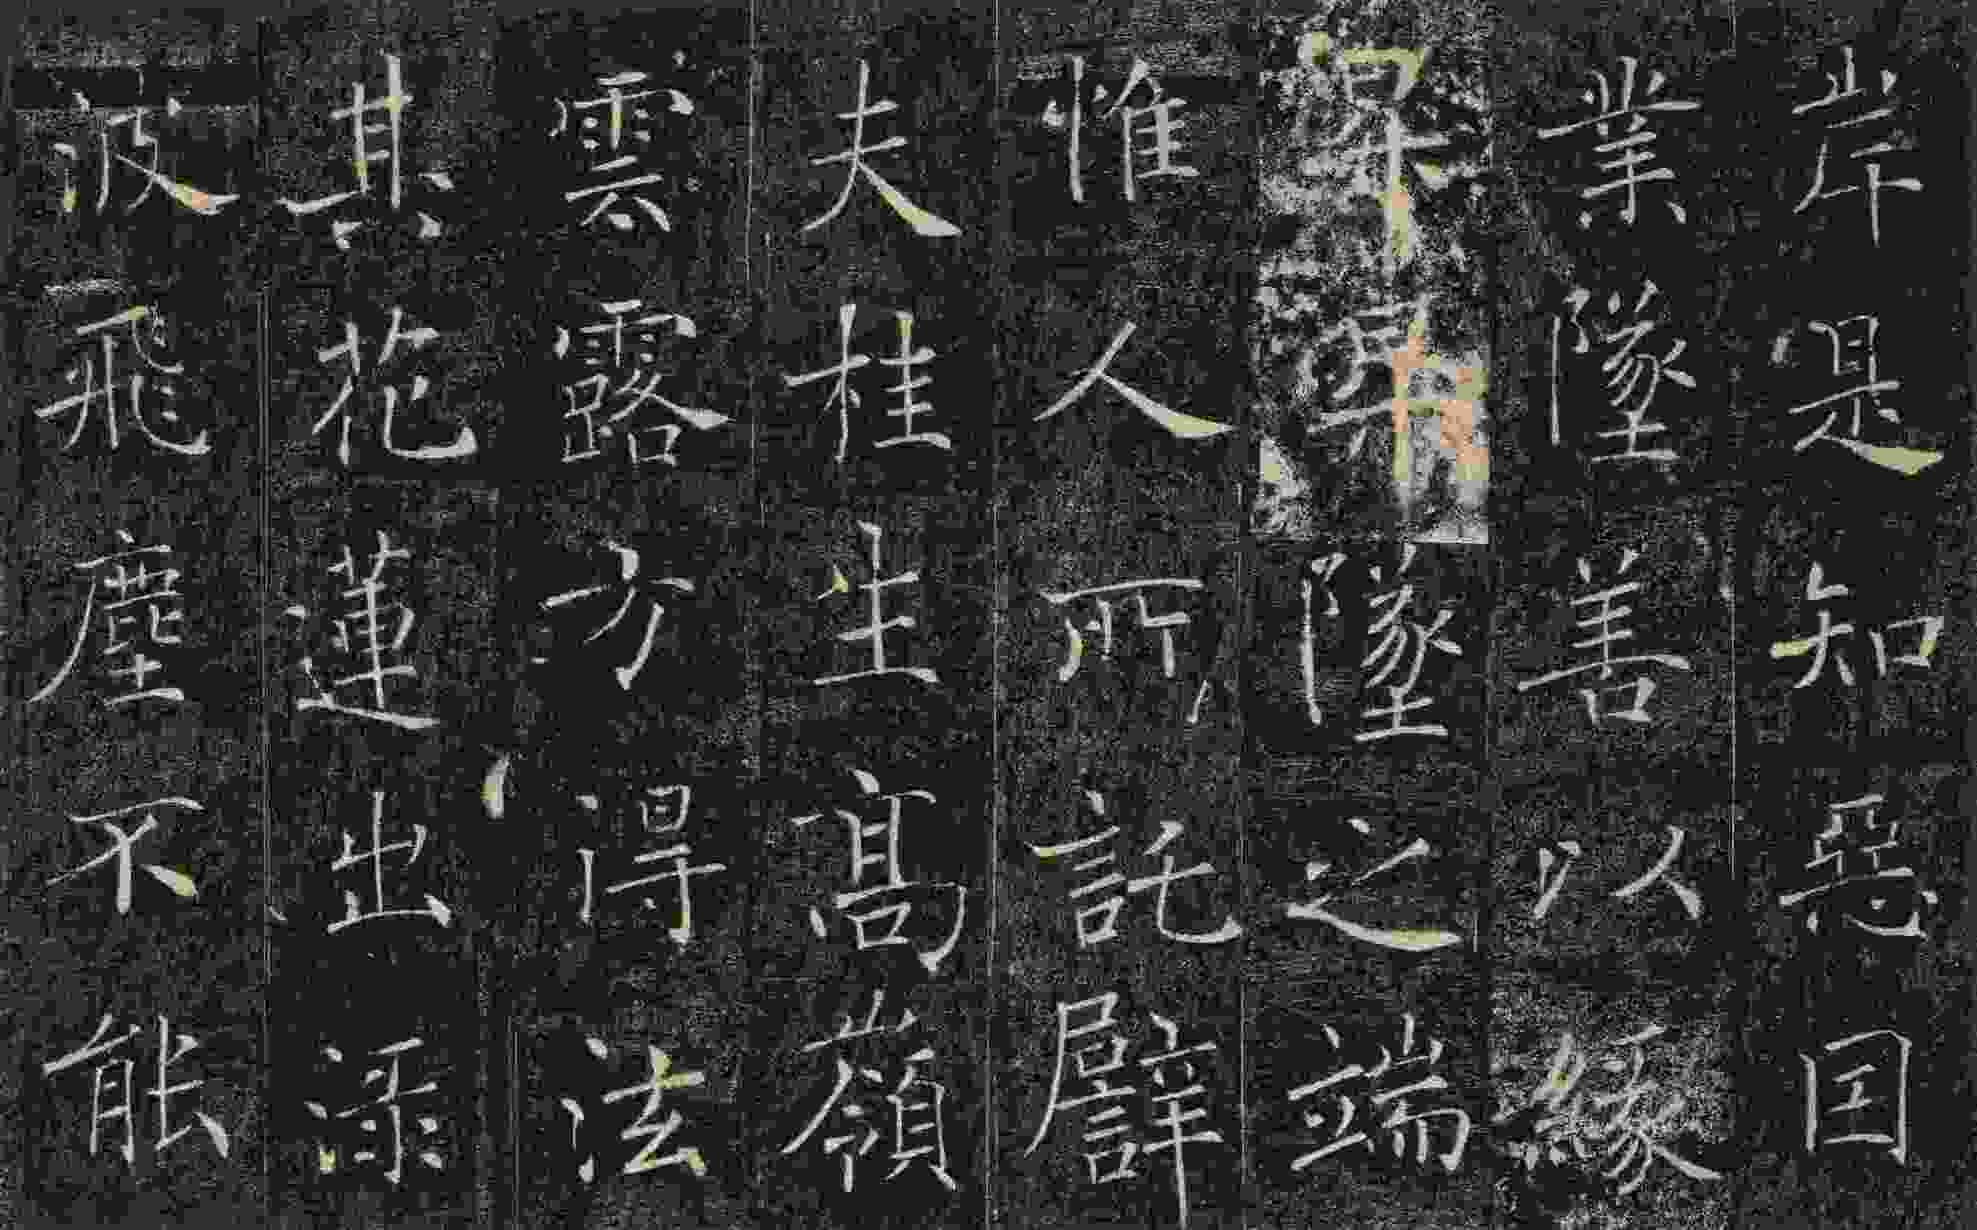 岸是知惡因
業墜善以緣
昇昇墜之端
惟人所託譬
夫桂生髙嶺
雲露方得泫
其花蓮出淥
波飛塵不能